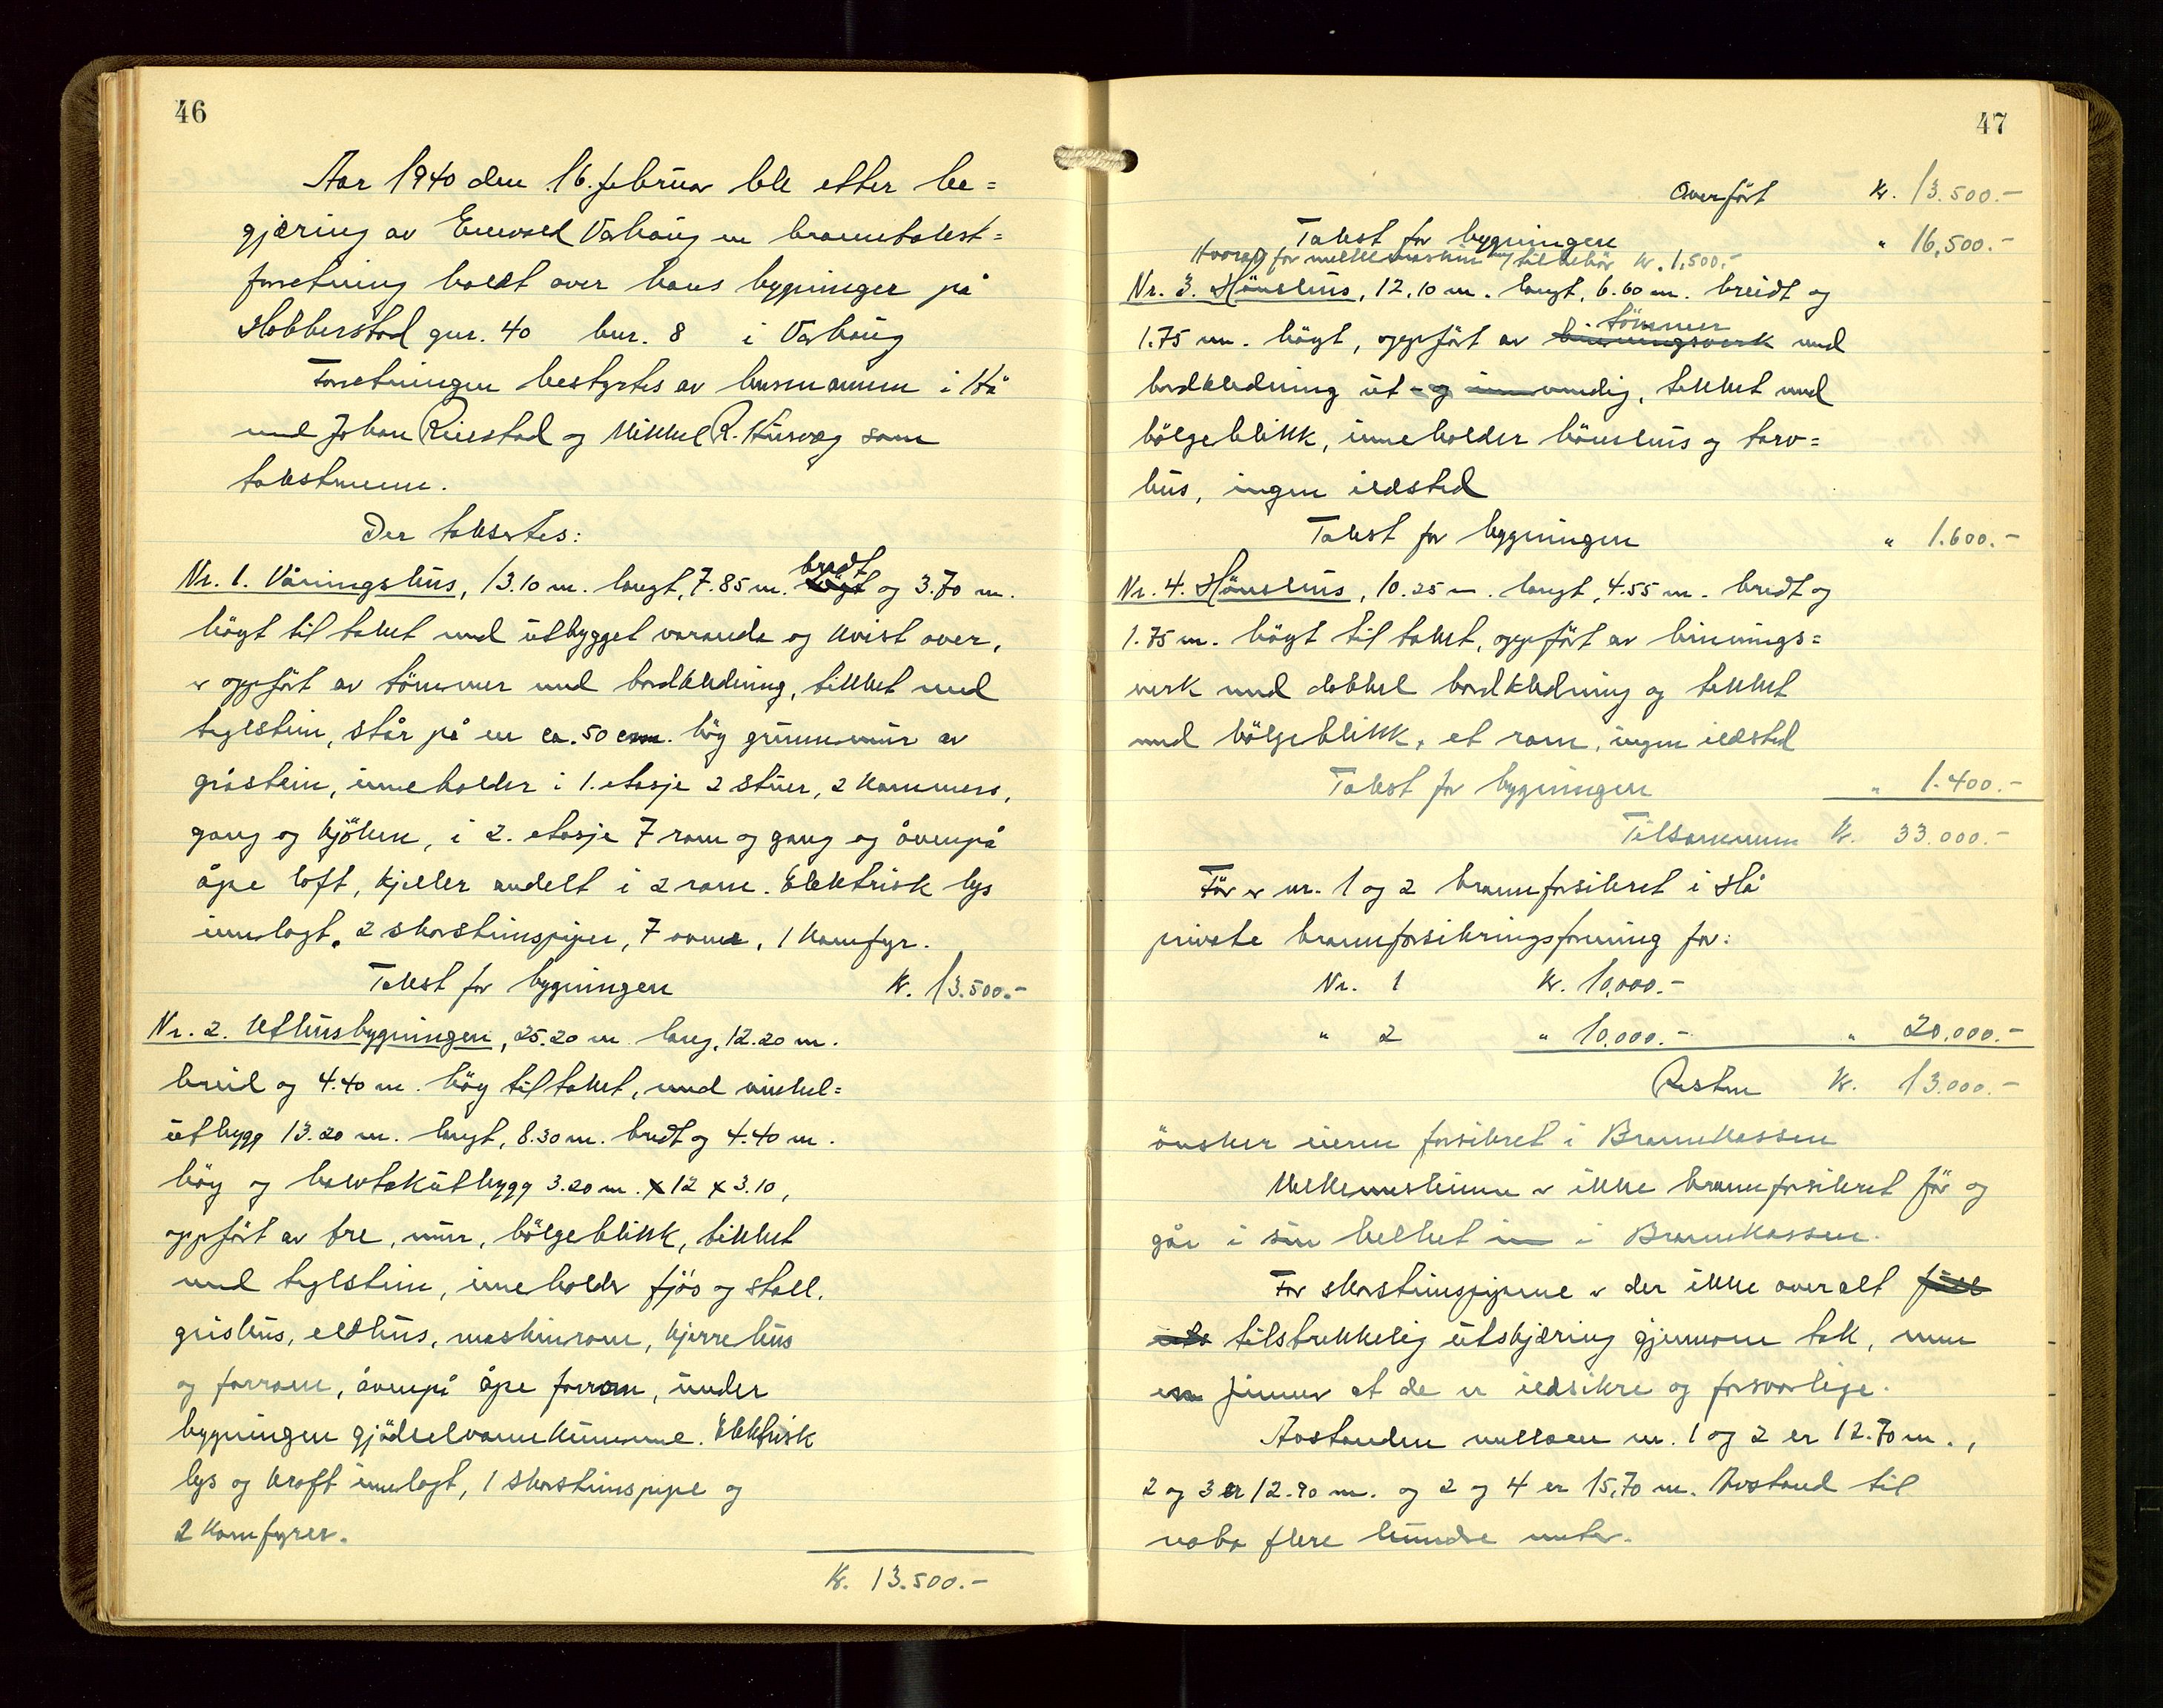 46
Aar 1940 den 16. februar ble etter be=
gjæring av Enevald Varhaug en brannetakst=
forretning holdt over hans bygninger på
Slobberstad gnr. 40 bnr. 8 i Varhaug
Forretningen bestyrtes av lensmannen i Hå
med Johan Reiestad og Mikkel R. Husvæg som
takstmenn.
Der taksertes:
bredt
Nr. 1. Våningshus, 13.10 m. langt, 7.85 m. högt og 3.70 m.
högt til taket med utbygget varanda og kvist over,
er oppfört av tömmer med bordkledning, tekket med
teglstein, står på en ca. 50 cm. hög grunnmur av
gråstein, inneholder i 1. etasje 2 stuer, 2 kammers,
gang og kjöken, i 2. etasje 7 rom og gang og ovenpå
åpe loft, kjeller avdelt i 2 rom. Elektrisk lys
innlagt, 2 skorsteinspiper, 7 ovner, 1 komfyr.
Takst for bygningen Kr. 13.500.-
Nr. 2. Uthusbygningen, 25.20 m lang, 12.20 m.
breid og 4.40 m. hög til taket, med vinkel=
utbygg 13.20 m. langt, 8.30 m. bredt og 4.40 m.
hög og halvtakutbygg 3.20 m. x 12 x 3.10,
oppfört av tre, mur, bölgeblikk, tekket
med teglstein, inneholder fjös og stall,
grishus, eldhus, maskinrom, kjerrehus
og forrom, ovenpå åpe forrom, under
bygningen gjödselvannkumme. Elektrisk
lys og kraft innlagt, 1 skorsteinspipe og
2 komfyrer.
Kr. 13.500.-
47
Overfört Kr. 13.500.-
Takst for bygningen " 16,500.-
Hvorav for melkemaskin og tilbehör Kr. 1,500.-
Nr. 3. Hönsehus, 12.10 m. langt, 6.60 m. breidt og
tömmer
1.75 m. högt, oppfört av binningsverk med
bordkledning ut- og innvendig, tekket med
bölgeblikk, inneholder hönsehus og torv=
hus, ingen ildsted
Takst for bygningen " 1.600.-
Nr. 4. Hönsehus, 10.25 m. langt, 4.55 m. bredt og
1.75 m. högt til taket, oppfört av binnings=
verk med dobbel bordkledning og tekket
med bölgeblikk, et rom, ingen ildsted
Takst for bygningen " 1.400.-
Tilsammen Kr. 33.000.-
För er nr. 1 og 2 brannforsikret i Hå
private brannforsikringsforening for:
Nr. 1 Kr. 10,000.-
" 2 " 10,000.- " 20,000.-
Resten Kr. 13.000.-
önsker eieren forsikret i Brannkassen
Melkemaskinen er ikke brannforsikret för og
går i sin helhet inn i Brannkassen.
For skorsteinspipene er der ikke overalt full
tilstrekkelig utskjæring gjennom tak, men
en finner at de er ildsikre og forsvarlige.
Avstanden mellom nr. 1 og 2 er 12.70 m.,
2 og 3 er 12.90 m. og 2 og 4 er 15,70 m. Avstand til
nabo flere hundre meter.